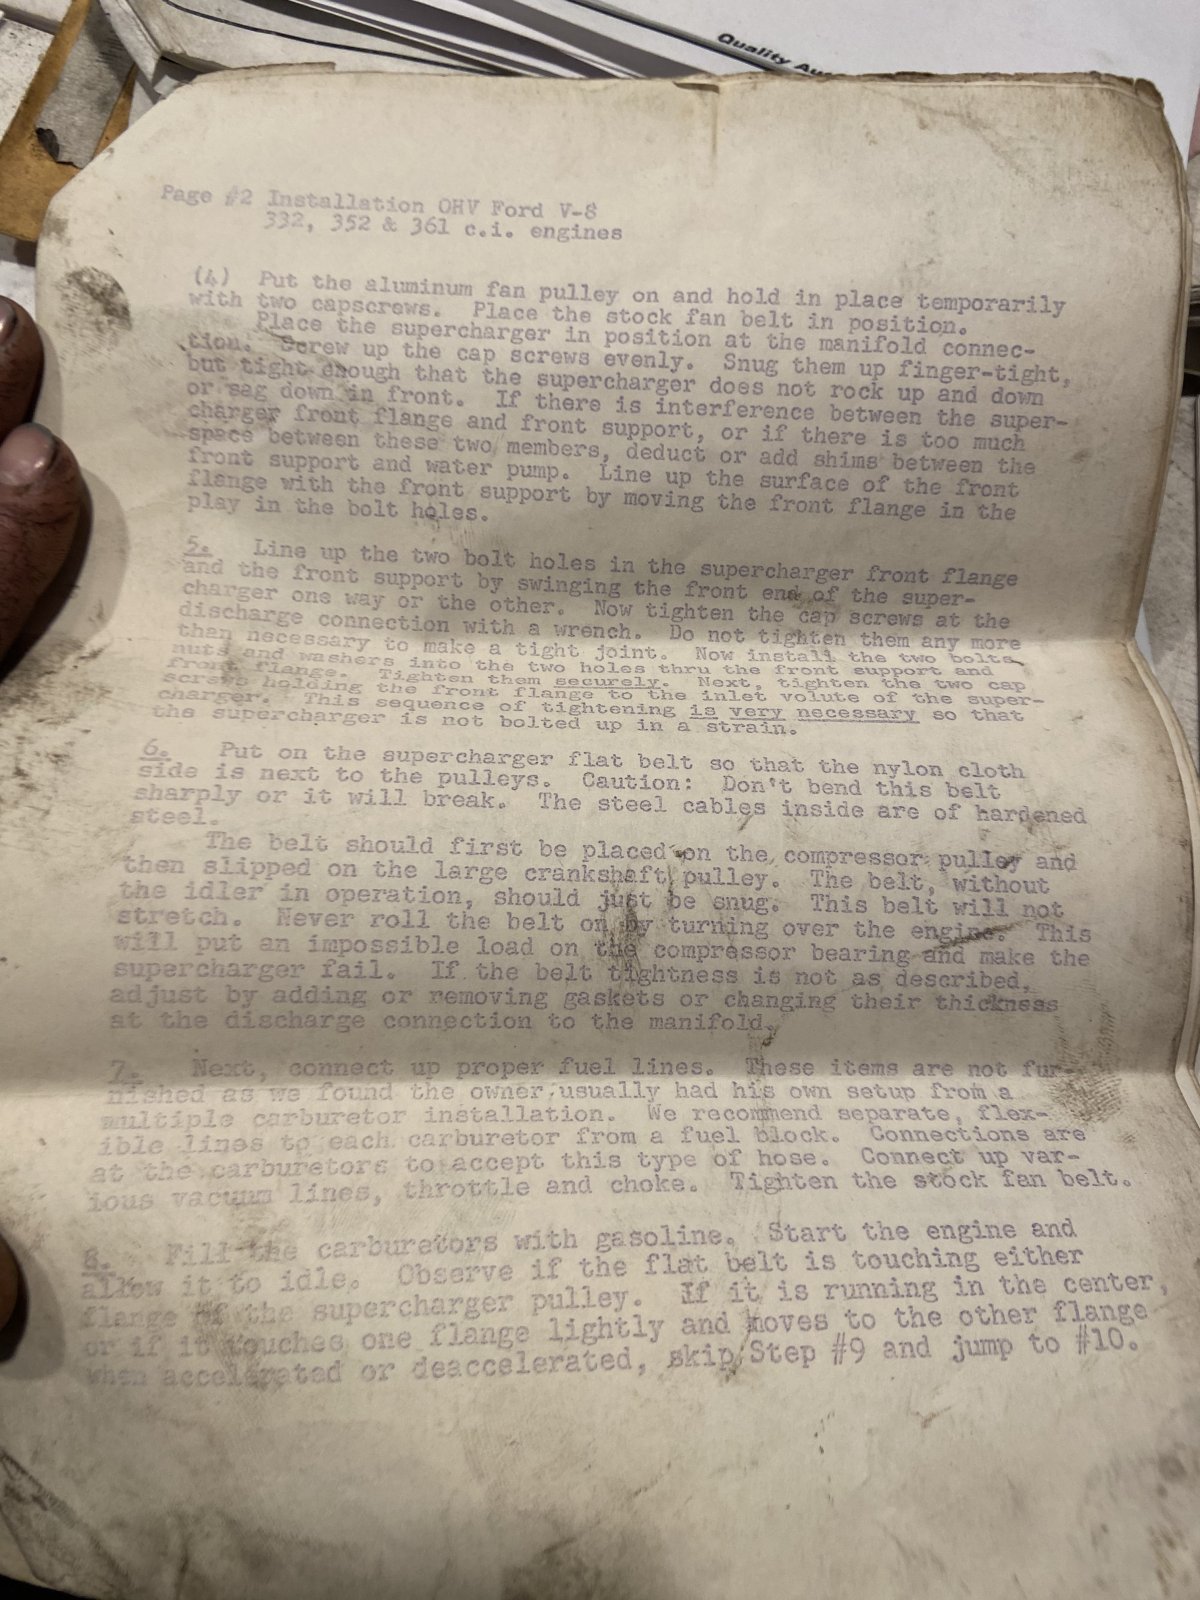 Quality Au
Page #2 Installation OHV Ford V-8
332, 352 & 361 c.i. engines
(4) Put the aluminum fan pulley on and hold in place temporarily
with two capscrews. Place the stock fan belt in position.
Place the supercharger in position at the manifold connec-
tion. Screw up the cap screws evenly. Snug them up finger-tight,
but tight enough that the supercharger does not rock up and down
or sag down in front. If there is interference between the super-
charger front flange and front support, or if there is too much
space between these two members, deduct or add shims between the
front support and water pump. Line up the surface of the front
flange with the front support by moving the front flange in the
play in the bolt holes.
5. Line up the two bolt holes in the supercharger front flange
and the front support by swinging the front end of the super-
charger one way or the other. Now tighten the cap screws at the
discharge connection with a wrench. Do not tighten them any more
than necessary to make a tight joint. Now install the two bolts,
nuts and washers into the two holes thru the front support and
front flange. Tighten them securely. Next, tighten the two cap
screws holding the front flange to the inlet volute of the super-
charger. This sequence of tightening is very necessary so that
the supercharger is not bolted up in a strain.
6. Put on the supercharger flat belt so that the nylon cloth
side is next to the pulleys. Caution: Don't bend this belt
sharply or it will break. The steel cables inside are of hardened
steel.
The belt should first be placed on the compressor pulley and
then slipped on the large crankshaft pulley. The belt, without
the idler in operation, should just be snug. This belt will not
stretch. Never roll the belt on by turning over the engine. This
will put an impossible load on the compressor bearing and make the
supercharger fail. If the belt tightness is not as described,
adjust by adding or removing gaskets or changing their thickness
at the discharge connection to the manifold.
7. Next, connect up proper fuel lines. These items are not fur-
nished as we found the owner usually had his own setup from a
multiple carburetor installation. We recommend separate, flex-
ible lines to each carburetor from a fuel block. Connections are
at the carburetors to accept this type of hose. Connect up var-
ious vacuum lines, throttle and choke. Tighten the stock fan belt.
8. Fill the carburetors with gasoline. Start the engine and
allow it to idle. Observe if the flat belt is touching either
flange of the supercharger pulley. If it is running in the center,
or if it touches one flange lightly and moves to the other flange
when accelerated or deaccelerated, skip Step #9 and jump to #10.